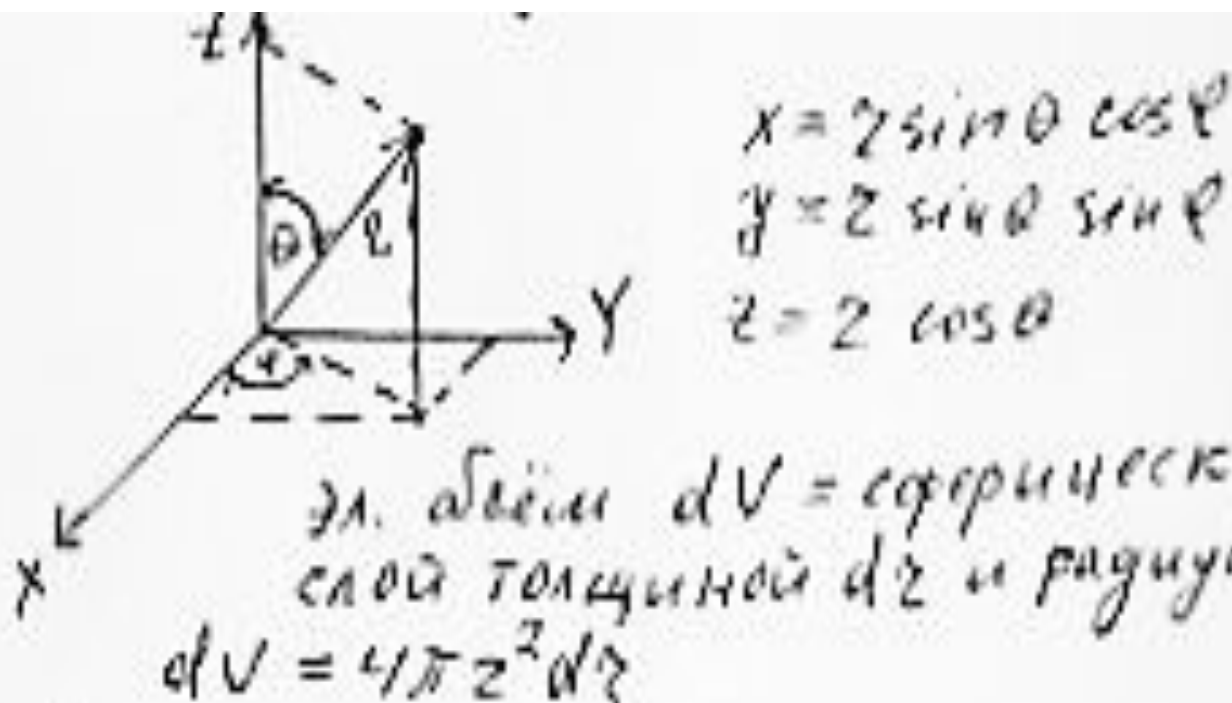 z
x = r sinθ cosφ
θ
r
y = r sinθ sinφ
Y
z = r cosθ
φ
X
эл. объём dV = сферическ
слой толщиной dr и радиу
dV = 4πr²dr